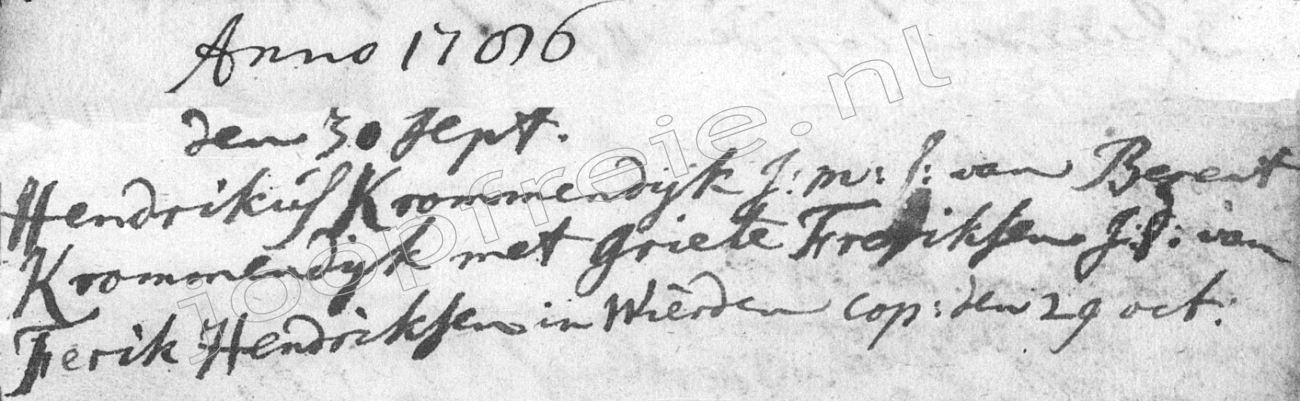 Anno 1706
den 30 Sept.
Hendrikus Krommendijk J: m: s: van Berent
Krommendijk met Griete Freriksen J: d: van
Ferik Hendriksen in Wierden cop: den 29 oct:
joopfreie.nl